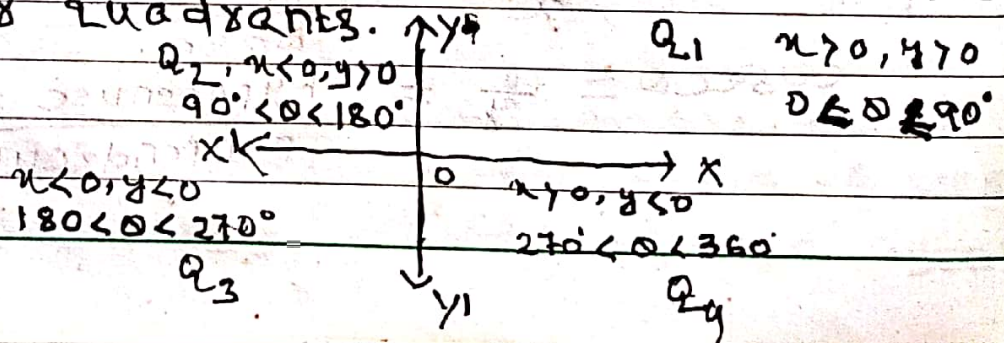 Quadrants.
Y
Q2, x<0, y>0
90° <θ<180°
Q1 x>0, y>0
0 ≤ θ ≤ 90°
X
O
X
x<0, y<0
180<θ<270°
Q3
x>0, y<0
270°<θ<360°
Q4
Y1